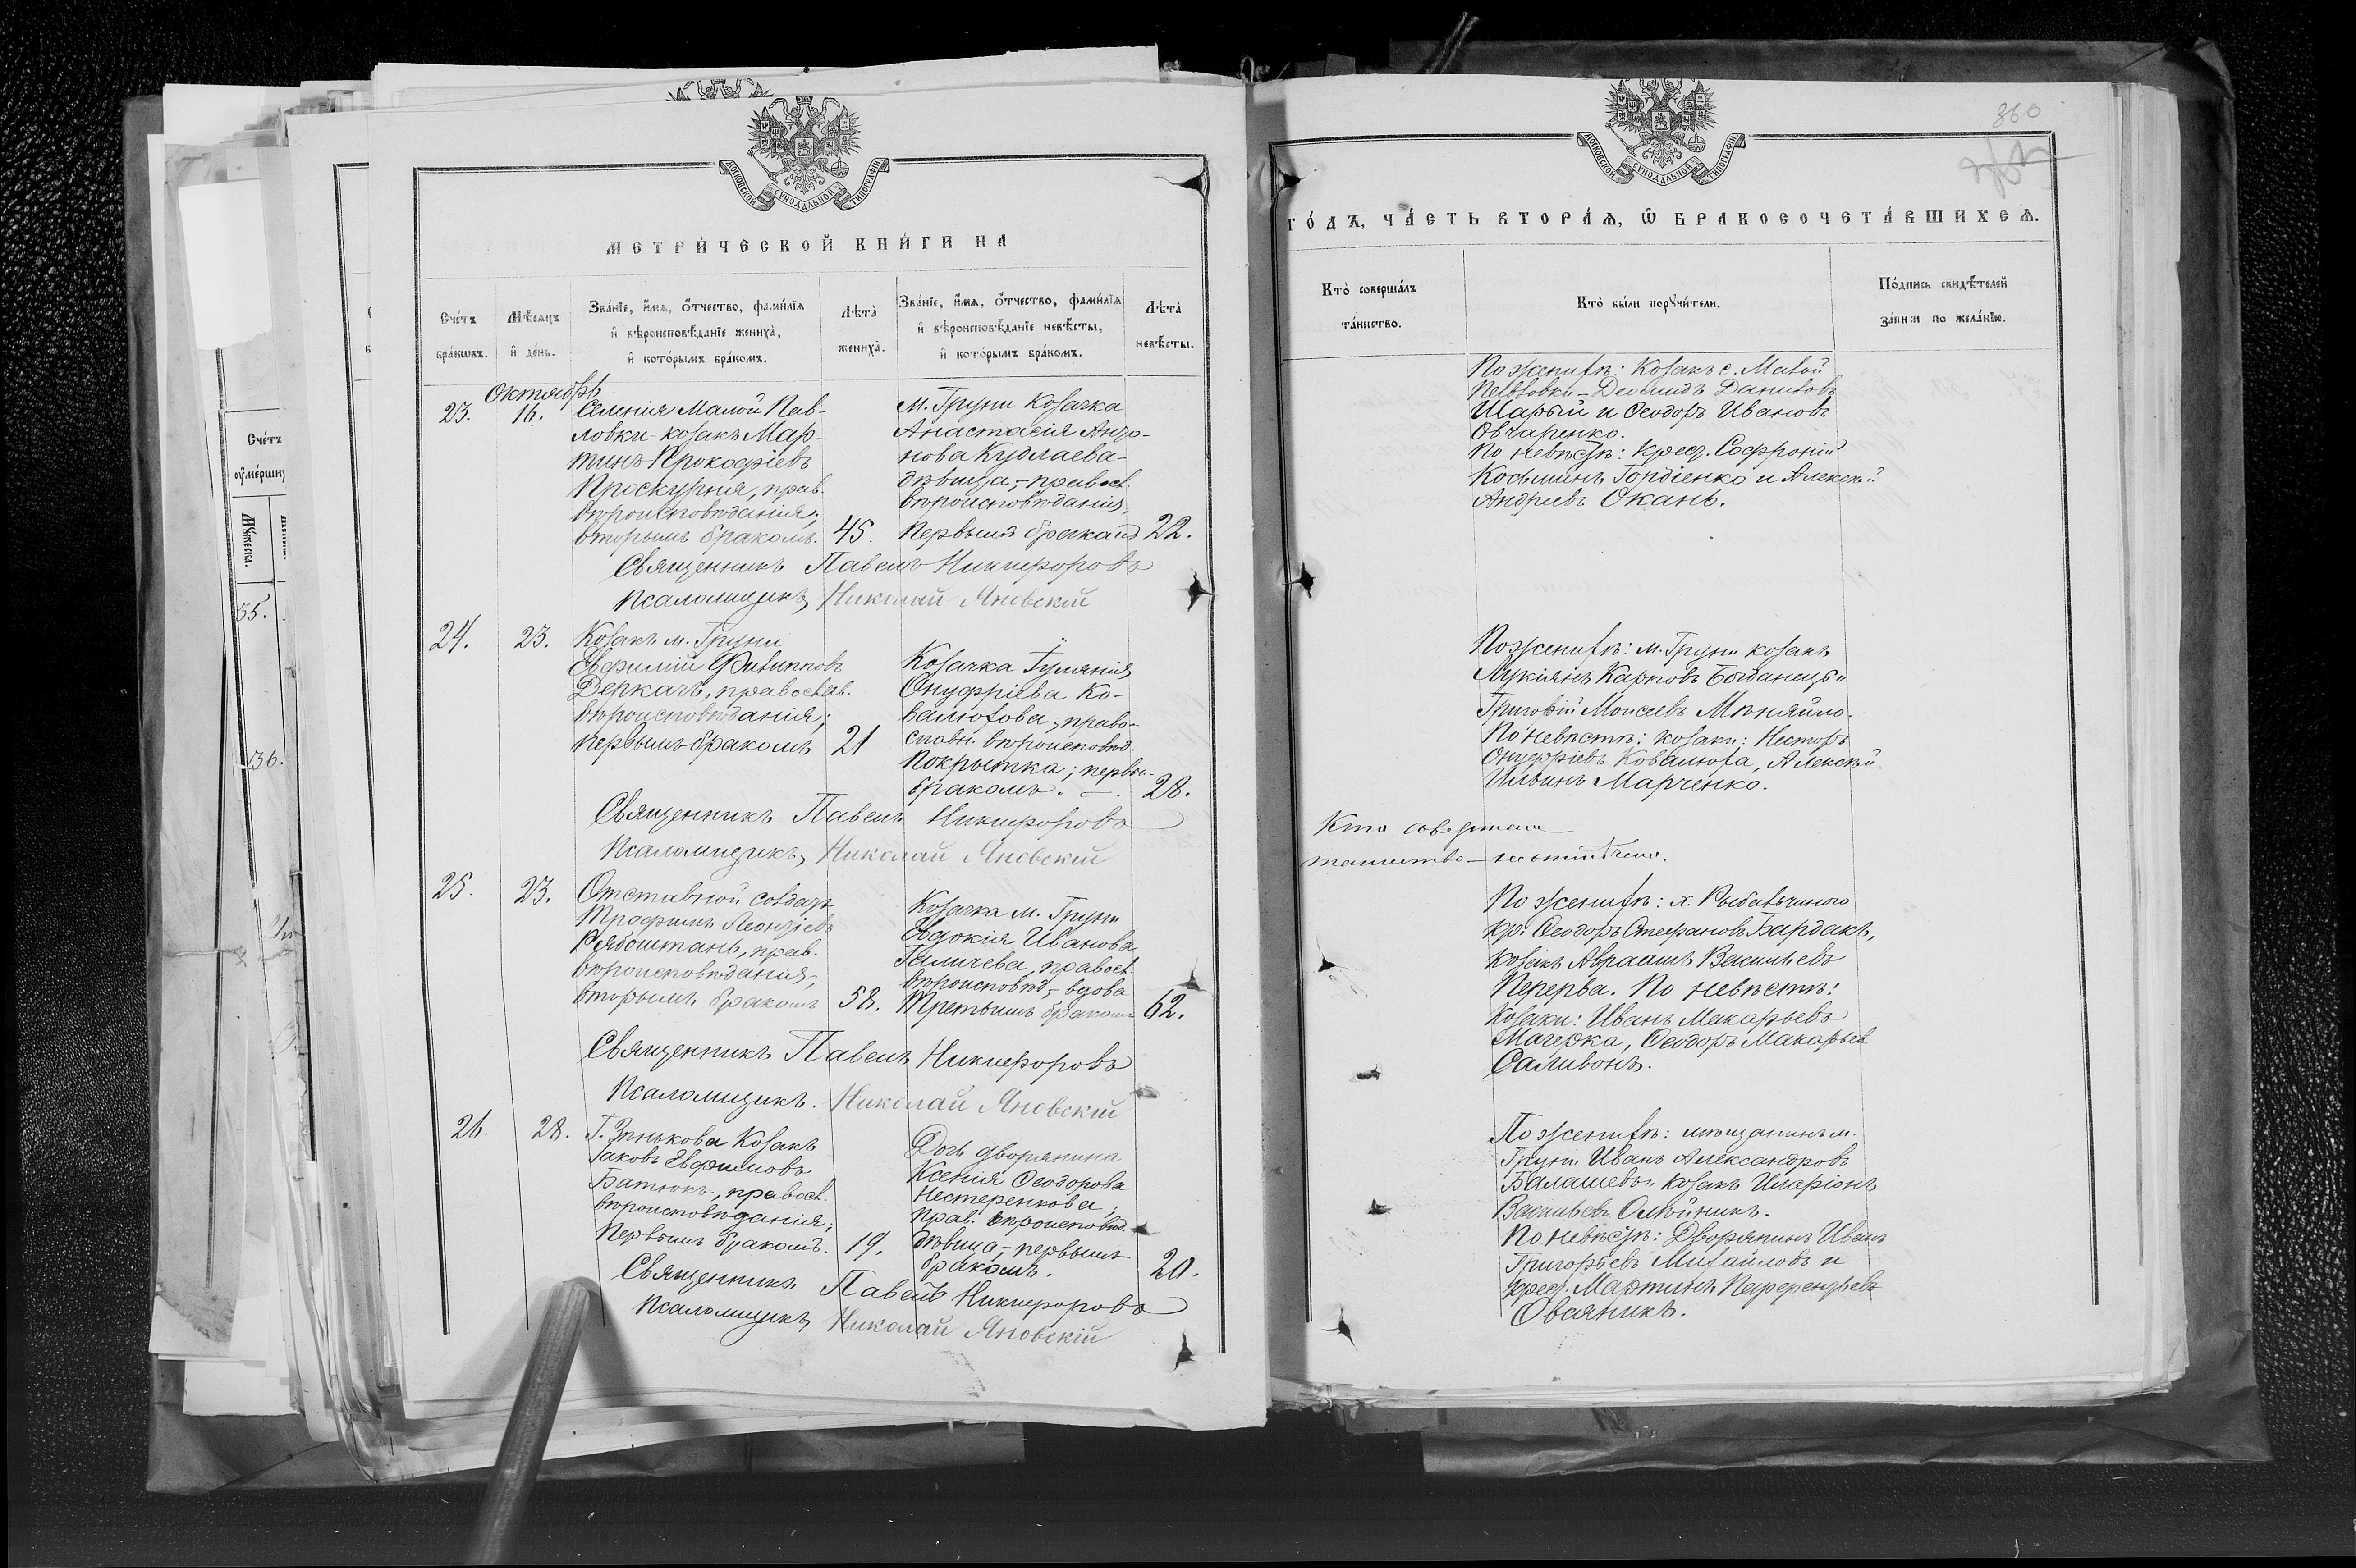 МОСКОВСКОЙ СѴНОДАЛЬНОЙ ТИПОГРАФІИ
МЕТРИ́ЧЕСКОЙ КНИ́ГИ НА
Сче́тъ бра́кωвъ.
Мѣ́сяцъ и҆ де́нь.
Зва́нїе, и҆́мѧ, ѻ҆́тчество, фами́лїѧ
и҆ вѣроисповѣ́данїе жениха̀,
и҆ кото́рымъ бра́комъ.
Лѣ́та̀ жениха̀.
Зва́нїе, и҆́мѧ, ѻ҆́тчество, фами́лїѧ
и҆ вѣроисповѣ́данїе невѣ́сты,
и҆ кото́рымъ бра́комъ.
Лѣ́та̀ невѣ́сты.
Октябрь
23. 16.
Селенія Малой Пав-
ловки - козакъ Мар-
тинъ Прокофіевъ
Проскурня, прав.
вѣроисповѣданія;
вторымъ бракомъ. 45.
м. Груни Козачка
Анастасія Анто-
нова Кудлаева-
дѣвица, - правосл.
вѣроисповѣданія,
первымъ бракомъ 22.
Священникъ Павелъ Никифоровъ
Псаломщикъ Николай Яновскій
24. 23.
Козакъ м. Груни
Евфимій Филипповъ
Деркачъ, православ.
вѣроисповѣданія;
первымъ бракомъ 21
Козачка Гуляния
Онуфріева Ко-
валюхова, право-
славн. вѣроисповѣд.
Покрытка; первы-
бракомъ. —. 28.
Священникъ Павелъ Никифоровъ
Псаломщикъ, Николай Яновскій
25. 23.
Отставной солдатъ
Трофимъ Леонтіевъ
Рябоштанъ, прав.
вѣроисповѣданія;
вторымъ бракомъ 58.
Козачка м. Груни
Евдокія Иванова
Галичева, правосл.
вѣроисповѣд; - вдова
Третьимъ бракомъ 62.
Священникъ Павелъ Никифоровъ
Псаломщикъ. Николай Яновскій
26. 28.
Г. Зѣнькова Козакъ
Іаковъ Евфимовъ
Батюкъ, правосл.
вѣроисповѣданія;
Первымъ бракомъ. 19.
Дочь дворянина
Ксенія Ѳеодорова
Нестеренкова,
прав. вѣроисповѣд.
дѣвица, - первымъ
бракомъ. 20.
Священникъ Павелъ Никифоровъ
Псаломщикъ Николай Яновскій
860
МОСКОВСКОЙ СѴНОДАЛЬНОЙ ТИПОГРАФІИ
ГО́ДЪ, ЧА́СТЬ ВТОРА́Ѧ, Ѡ҆ БРАКОСОЧЕТА́ВШИХСѦ.
Кто̀ соверша́лъ
та́инство.
Кто̀ бы́ли порꙋчи́тели.
По́дпись свидѣ́телей
за́писи по жела́нїю.
По женихѣ: Козакъ с. Малой
Павловки - Демидъ Даниловъ
Шарый и Ѳеодоръ Ивановъ
Овчаренко.
По невѣстѣ: крест. Софроній
Косминъ Гордіенко и Алексѣй
Андріевъ Окань.
По женихѣ: м. Груни козакъ
Лукіянъ Карповъ Богданецъ и
Григорій Моисеевъ Мѣняйло.
По невѣстѣ: козаки: Несторъ
Онуфріевъ Ковалюха, Алексѣй
Ильинъ Марченко.
Кто совершалъ
таинство - не отмѣчено.
По женихѣ: х. Рыбальчиного
кр. Ѳеодоръ Стефановъ Бардакъ,
козакъ Авраамъ Васильевъ
Перерва. По невѣстѣ:
Козаки: Иванъ Макарьевъ
Мачерка, Ѳеодоръ Макарьев
Саливонъ.
По женихѣ: мѣщанинъ м.
Груни Иванъ Александровъ
Балашевъ и козакъ Иларіонъ
Васильевъ Олѣйникъ.
По невѣстѣ: Дворянинъ Иванъ
Григорьевъ Михайловъ и
крест. Мартинъ Парфентьевъ
Овсяникъ.
Сче́тъ
ᲂу҆ме́ршихъ
Мꙋ́жеска.
55.
136.